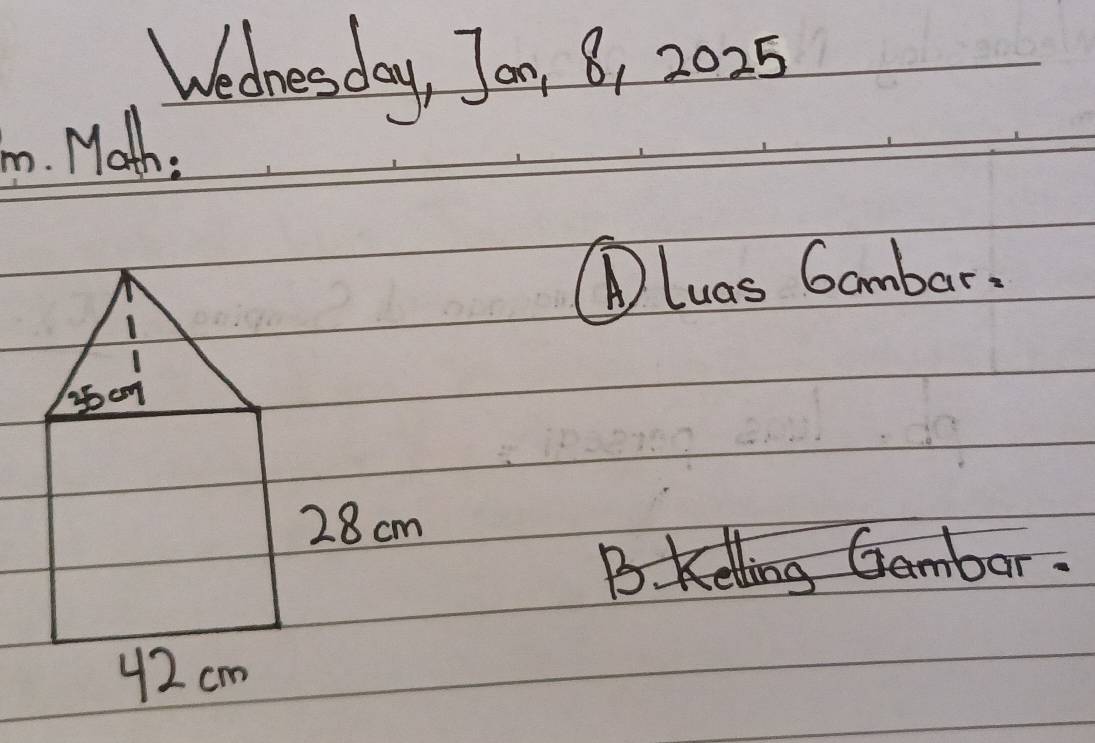 Wednesday, Jan, 8, 2025
m. Math:
A Luas Gambar:
35 cm
28 cm
B. Kelling Gambar.
42 cm